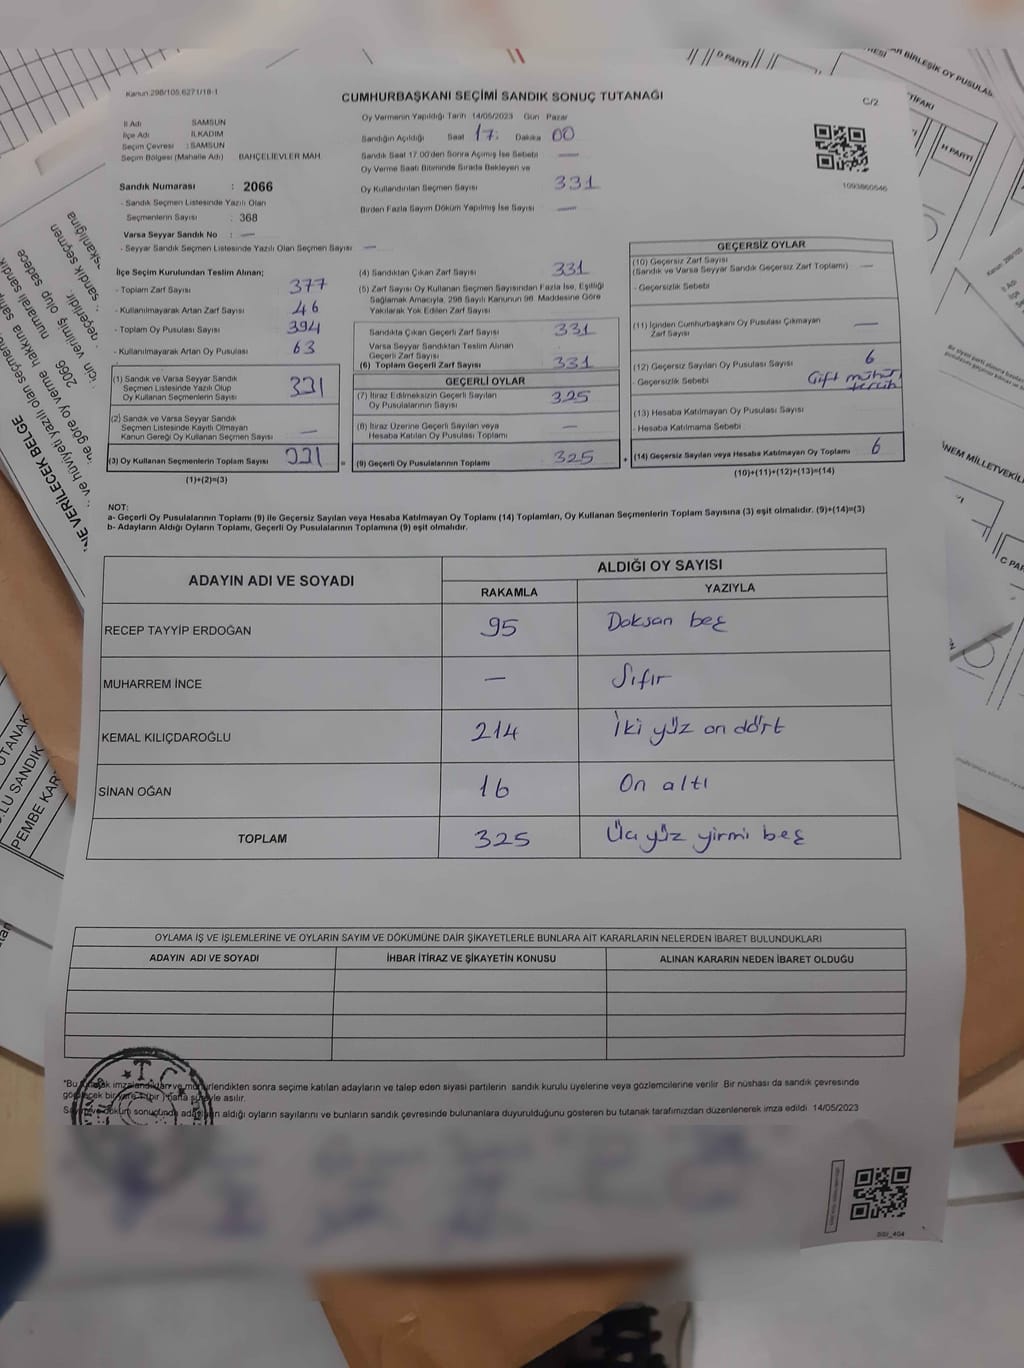 Kanun:298/105,6271/18-1
CUMHURBAŞKANI SEÇİMİ SANDIK SONUÇ TUTANAĞI
C/2
İl Adı SAMSUN
İlçe Adı İLKADIM
Seçim Çevresi : SAMSUN
Seçim Bölgesi (Mahalle Adı) BAHÇELİEVLER MAH.
Oy Vermenin Yapıldığı Tarih 14/05/2023 Gün Pazar
Sandığın Açıldığı Saat 17: Dakika 00
Sandık Saat 17.00'den Sonra Açılmış İse Sebebi —
Oy Verme Saati Bitiminde Sırada Bekleyen ve
Oy Kullandırılan Seçmen Sayısı 331
Birden Fazla Sayım Döküm Yapılmış İse Sayısı —
1093860546
Sandık Numarası : 2066
- Sandık Seçmen Listesinde Yazılı Olan
Seçmenlerin Sayısı : 368
Varsa Seyyar Sandık No : —
- Seyyar Sandık Seçmen Listesinde Yazılı Olan Seçmen Sayısı —
İlçe Seçim Kurulundan Teslim Alınan;
- Toplam Zarf Sayısı 377
- Kullanılmayarak Artan Zarf Sayısı 46
- Toplam Oy Pusulası Sayısı 394
- Kullanılmayarak Artan Oy Pusulası 63
(1) Sandık ve Varsa Seyyar Sandık
Seçmen Listesinde Yazılı Olup
Oy Kullanan Seçmenlerin Sayısı 331
(2) Sandık ve Varsa Seyyar Sandık
Seçmen Listesinde Kayıtlı Olmayan
Kanun Gereği Oy Kullanan Seçmen Sayısı —
(3) Oy Kullanan Seçmenlerin Toplam Sayısı 331 =
(1)+(2)=(3)
(4) Sandıktan Çıkan Zarf Sayısı 331
(5) Zarf Sayısı Oy Kullanan Seçmen Sayısından Fazla İse, Eşitliği
Sağlamak Amacıyla, 298 Sayılı Kanunun 98. Maddesine Göre
Yakılarak Yok Edilen Zarf Sayısı
Sandıkta Çıkan Geçerli Zarf Sayısı 331
Varsa Seyyar Sandıktan Teslim Alınan
Geçerli Zarf Sayısı
(6) Toplam Geçerli Zarf Sayısı 331
GEÇERLİ OYLAR
(7) İtiraz Edilmeksizin Geçerli Sayılan
Oy Pusulalarının Sayısı 325
(8) İtiraz Üzerine Geçerli Sayılan veya
Hesaba Katılan Oy Pusulası Toplamı —
(9) Geçerli Oy Pusulalarının Toplamı 325 +
GEÇERSİZ OYLAR
(10) Geçersiz Zarf Sayısı
(Sandık ve Varsa Seyyar Sandık Geçersiz Zarf Toplamı) —
- Geçersizlik Sebebi
(11) İçinden Cumhurbaşkanı Oy Pusulası Çıkmayan
Zarf Sayısı —
(12) Geçersiz Sayılan Oy Pusulası Sayısı 6
- Geçersizlik Sebebi Çift mühür,
tercih
(13) Hesaba Katılmayan Oy Pusulası Sayısı
- Hesaba Katılmama Sebebi
(14) Geçersiz Sayılan veya Hesaba Katılmayan Oy Toplamı 6
(10)+(11)+(12)+(13)=(14)
NOT:
a- Geçerli Oy Pusulalarının Toplamı (9) ile Geçersiz Sayılan veya Hesaba Katılmayan Oy Toplamı (14) Toplamları, Oy Kullanan Seçmenlerin Toplam Sayısına (3) eşit olmalıdır. (9)+(14)=(3)
b- Adayların Aldığı Oyların Toplamı, Geçerli Oy Pusulalarının Toplamına (9) eşit olmalıdır.
ADAYIN ADI VE SOYADI
ALDIĞI OY SAYISI
RAKAMLA YAZIYLA
RECEP TAYYİP ERDOĞAN 95 Doksan beş
MUHARREM İNCE — Sıfır
KEMAL KILIÇDAROĞLU 214 İki yüz on dört
SİNAN OĞAN 16 On altı
TOPLAM 325 Üç yüz yirmi beş
OYLAMA İŞ VE İŞLEMLERİNE VE OYLARIN SAYIM VE DÖKÜMÜNE DAİR ŞİKAYETLERLE BUNLARA AİT KARARLARIN NELERDEN İBARET BULUNDUKLARI
ADAYIN ADI VE SOYADI İHBAR İTİRAZ VE ŞİKAYETİN KONUSU ALINAN KARARIN NEDEN İBARET OLDUĞU
"Bu imzalandıktan ve mühürlendikten sonra seçime katılan adayların ve talep eden siyasi partilerin sandık kurulu üyelerine veya gözlemcilerine verilir. Bir nüshası da sandık çevresinde
süreyle asılır.
döküm sonucunda adayların aldığı oyların sayılarını ve bunların sandık çevresinde bulunanlara duyurulduğunu gösteren bu tutanak tarafımızdan düzenlenerek imza edildi. 14/05/2023
T.C.
D PARTİ
BİRLEŞİK OY PUSULAS
H PARTİ
NEM MİLLETVEKİL
C PAR
NE VERİLECEK BELGE
UTANAK
LU SANDIK
PEMBE KAR